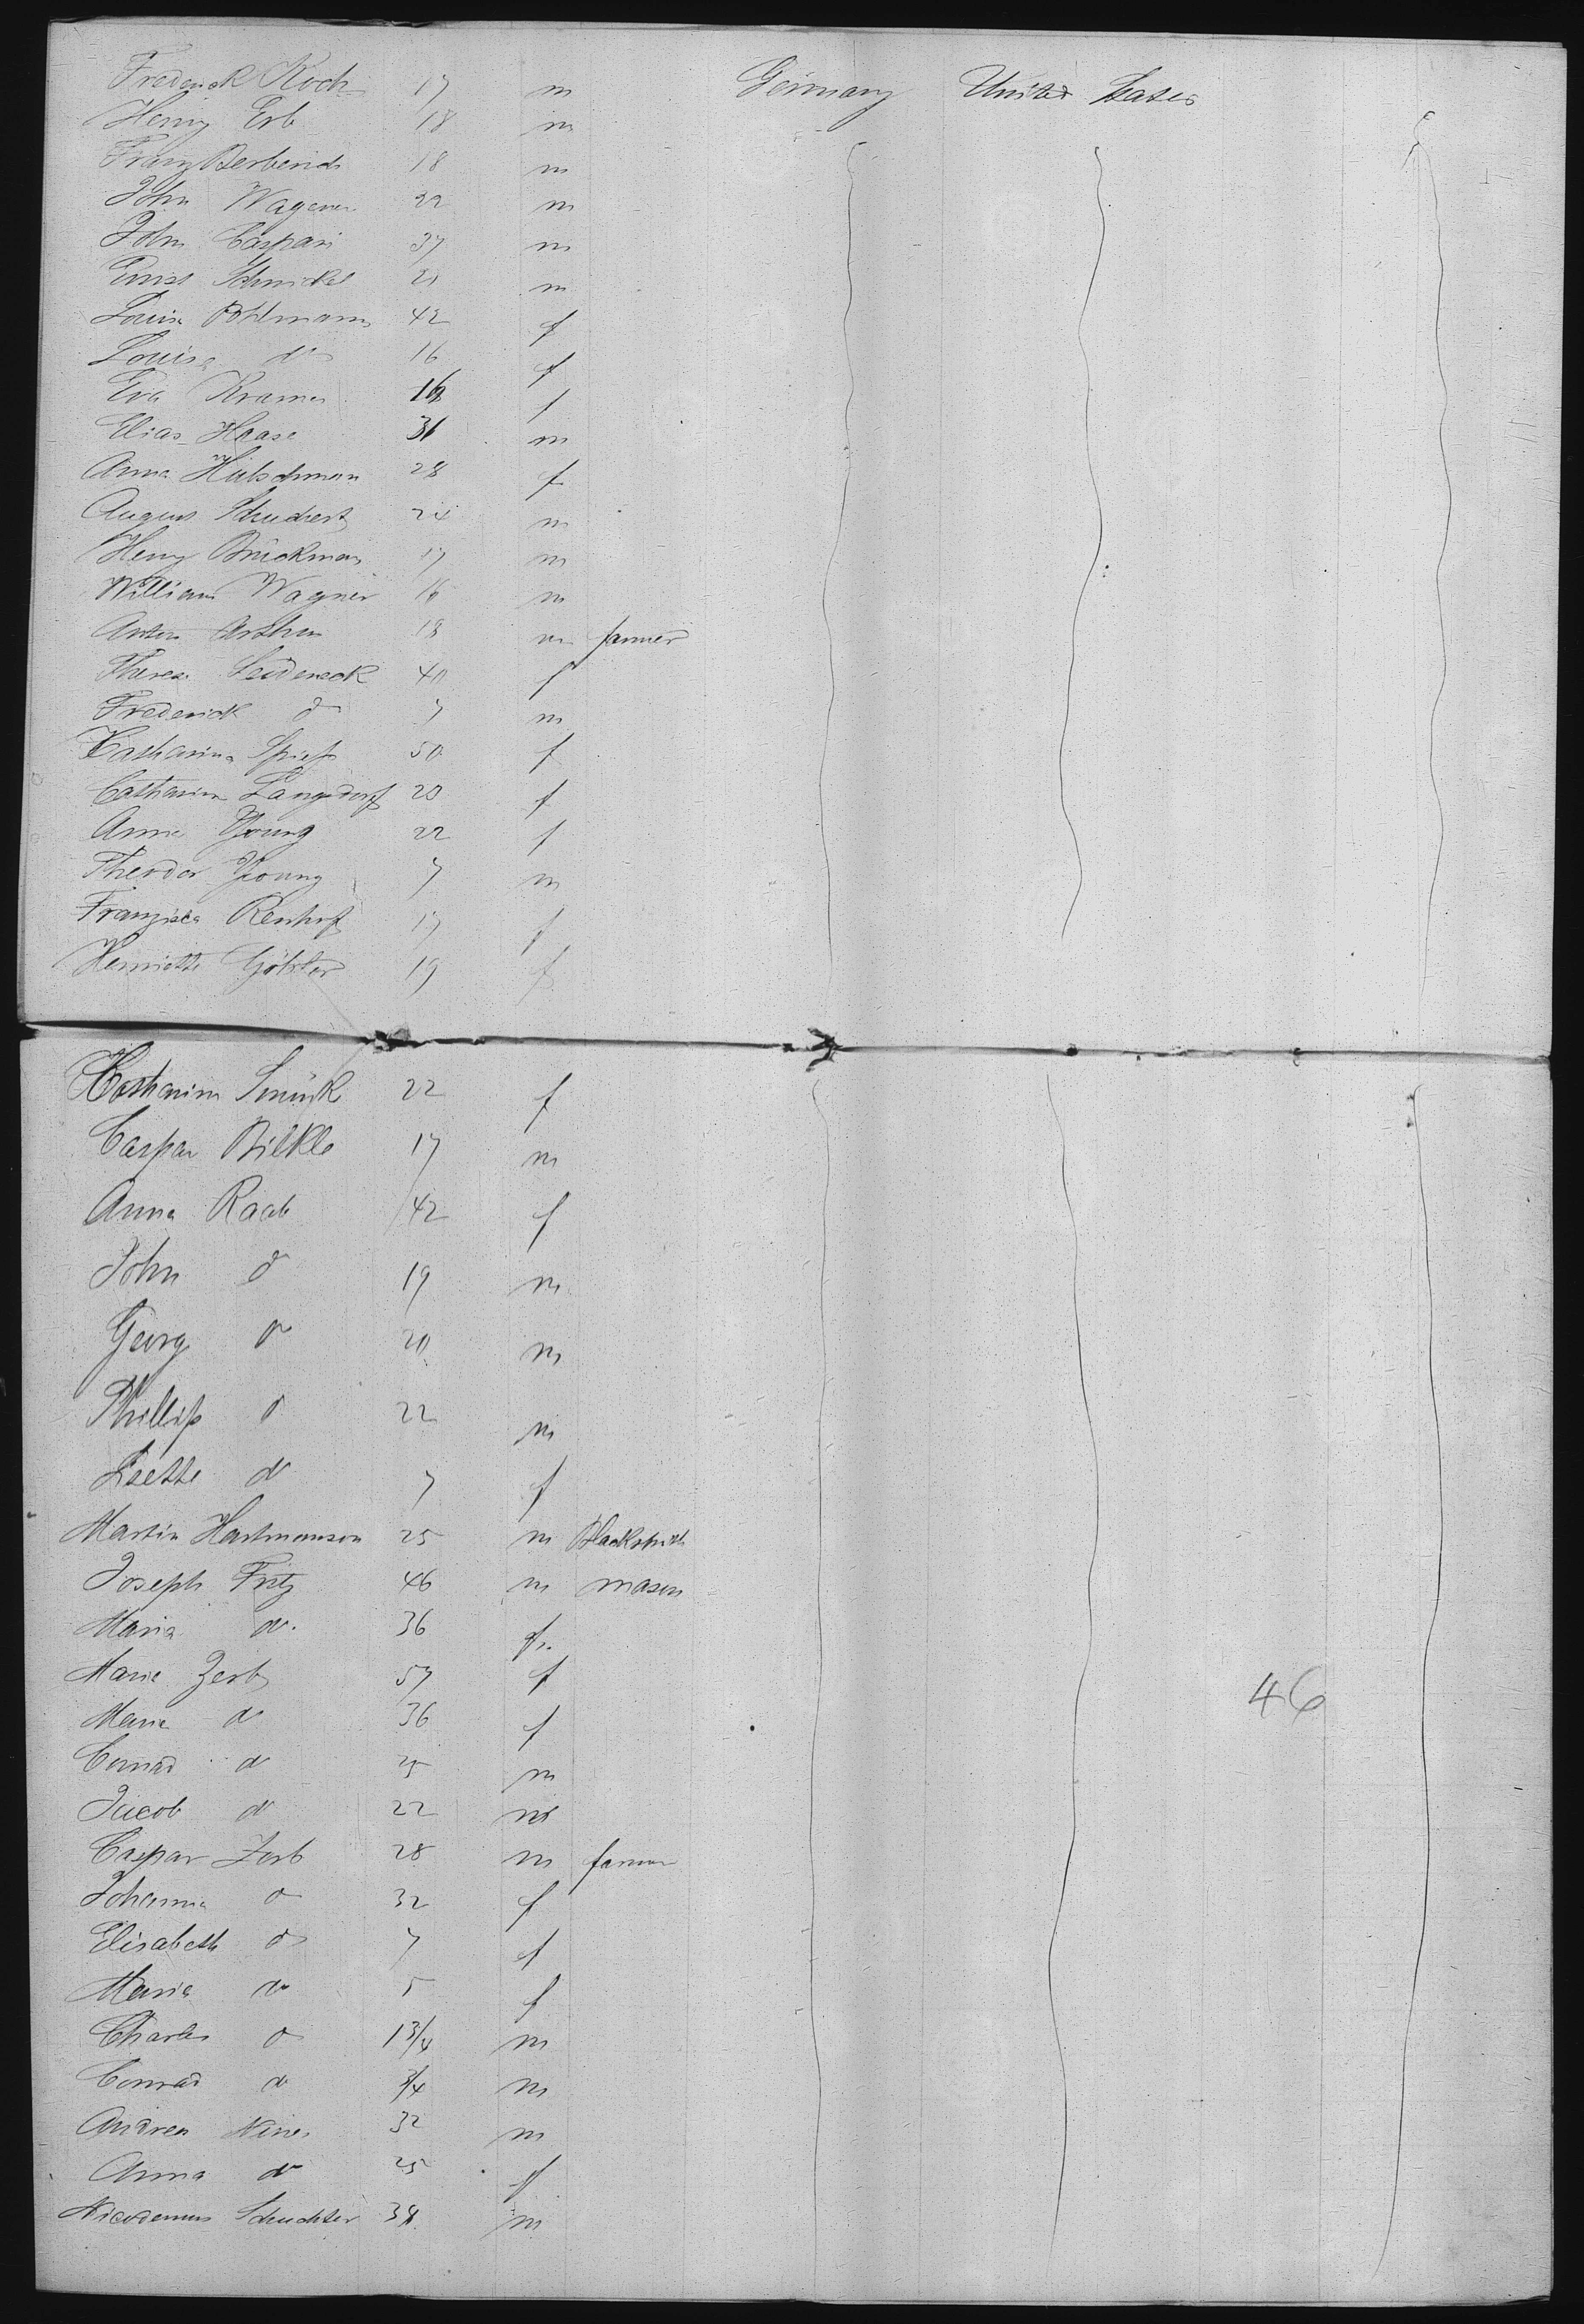 Frederick Koch 17 m Germany United States
Henry Erb 18 m
Franz Berberich 18 m
John Wagener 22 m
John Caspari 37 m
Ernst Schmickel 21 m
Louise Pohlmann 42 f
Louisa do 16 f
Eva Kramer f
Elias Haase 31 m
Anna Hutschman 28 f
August Schuchert 24 m
Henry Brückman 17 m
William Wagner 16 m
Anton 18 m farmer
Theresa Leideneck 40 f
Frederick do 7 m
Catharina Spiess 50 f
Catharina Langsdorf 20 f
Anna Young 22 f
Theodor Young 7 m
Franziska Renhof 17 f
Henriette 19 f
Catharina 22 f
Caspar Bilkle 17 m
Anna Raab 42 f
John do 19 m
Georg do 20 m
Phillip do 22 m
Lisette do 7 f
Martin Hartmanson 25 m Blacksmith
Joseph Fritz 46 m mason
Maria do. 36 f
Marie Zerb 57 f
Marie do 36 f
Conrad do 25 m
Jacob do 22 m
Caspar Zerb 28 m farmer
Johanna do 32 f
Elisabeth do 7 f
Maria do 5 f
Charles do 1 3/4 m
Conrad do 3/4 m
Andrea 32 m
Anna do 25 f
Nicodemus Schuchter 38 m
46